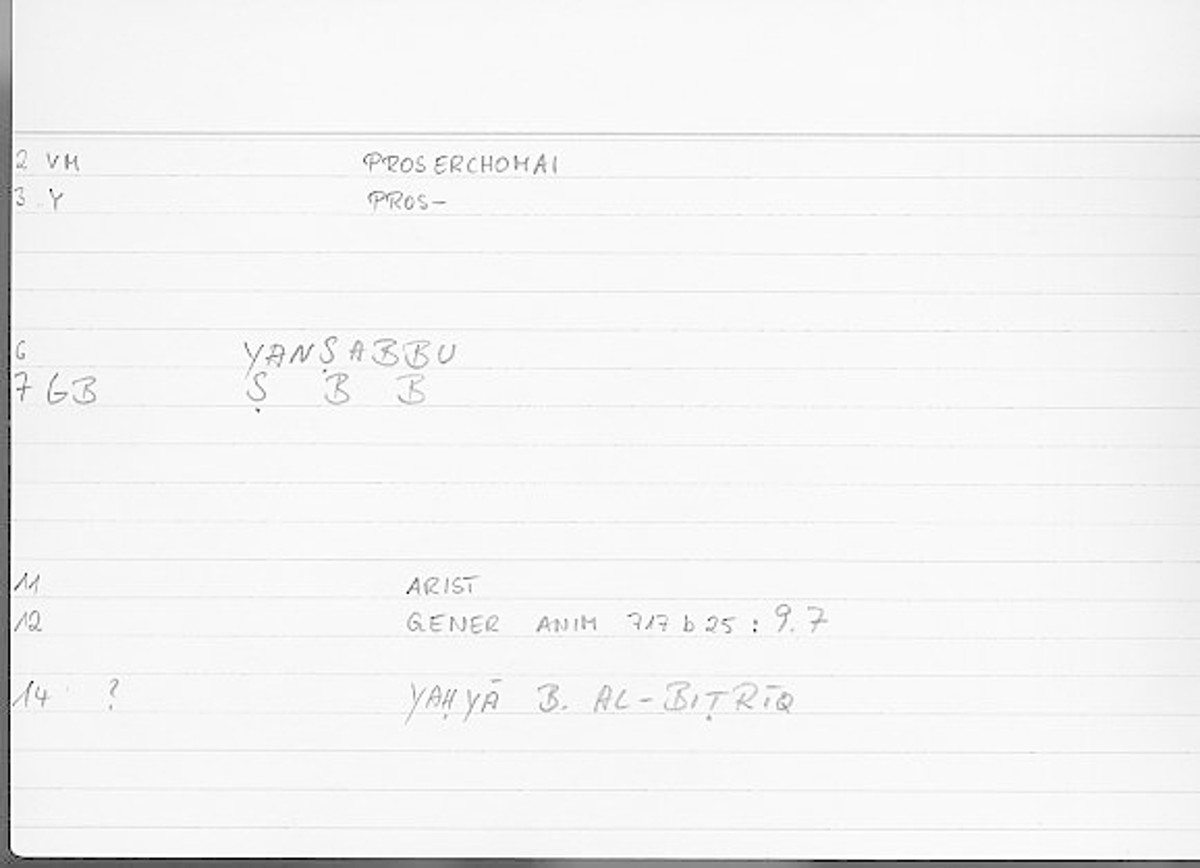 2 VM PROSERCHOMAI
3 Y PROS-
6 YANṢABBU
7 GB Ṣ B B
11 ARIST
12 GENER ANIM 717 b 25 : 9.7
14 ? YAḤYĀ B. AL-BIṬRĪQ